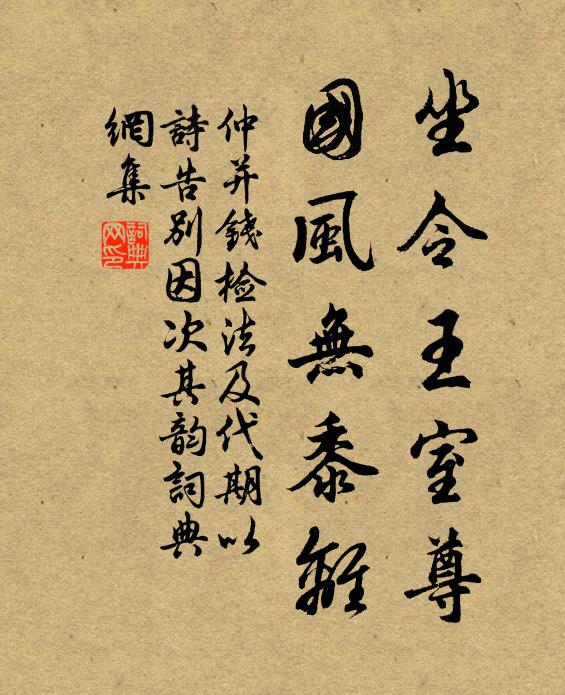 坐令王室尊
國風無黍離
仲并錢檢法及代期以
詩告別因次其韵詞典
網集
詞典网印